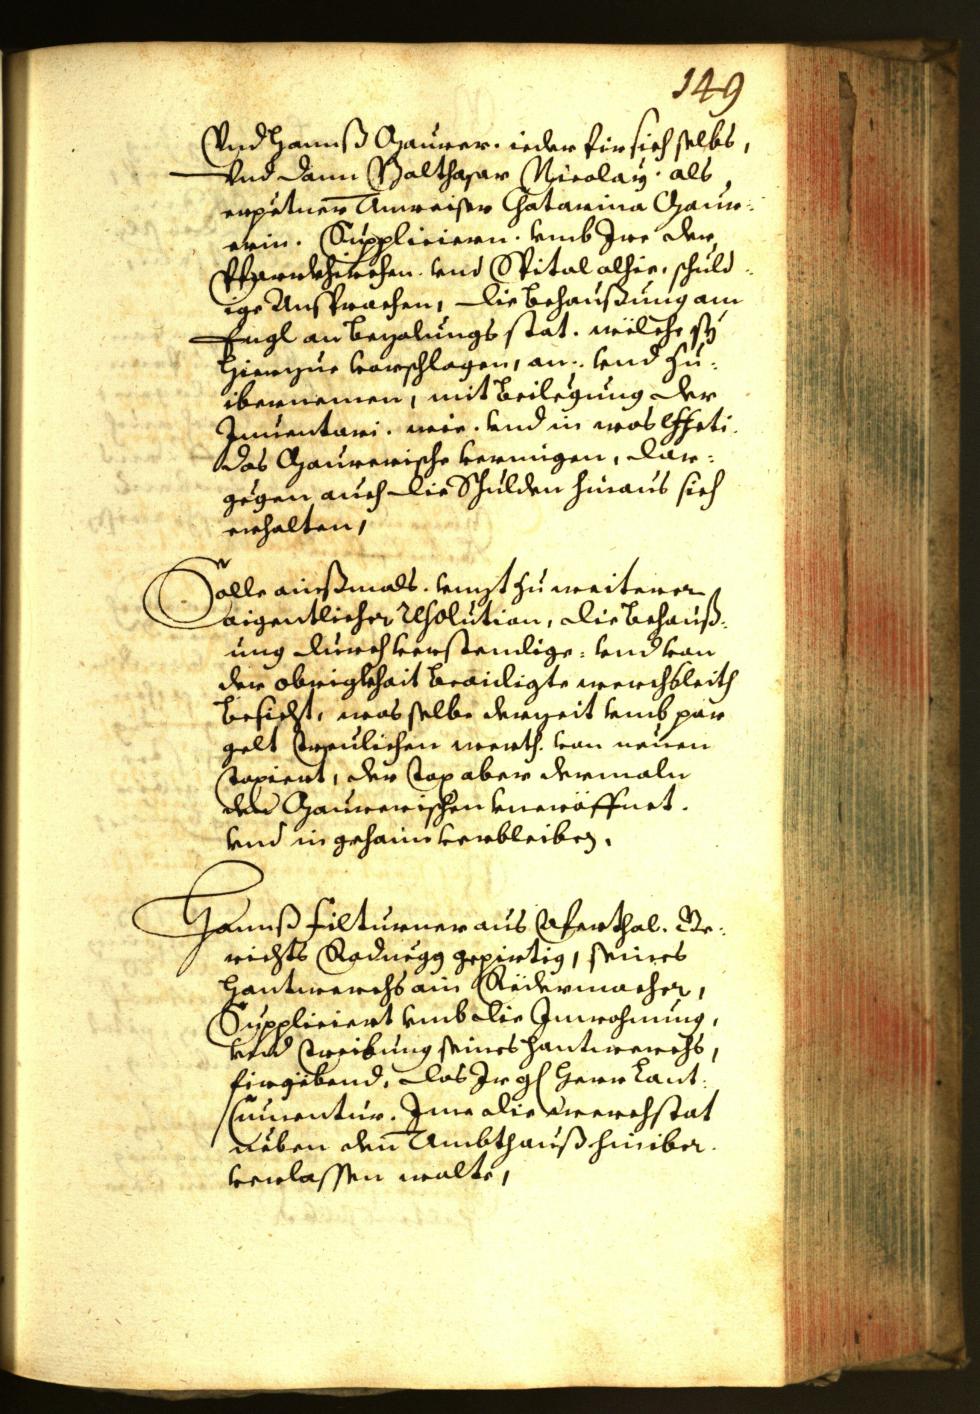 149
Vnd Hannß Gaurer. ieder für sich selbs,
Vnd dann Balthasar Nicolaÿ. als
erpetner Anweiser Chatarina Gaur:
erin. Suppliciern. vmb Ire der
Pfarrkhirchen. vnd Spital alhie, schuld:
ige Ansprachen, die behaußung am
Engl an bezalungs stat. wëlche sÿ
hierzue vorschlagen, an: vnd zu:
ibernemen, mit beilegung der
Inuentari. wie. vnd in was Effeti.
das Gaurerische vermigen, dar:
gegen auch die Schulden hinaus sich
erhalten,
Solle ainßmals. vnzt zu weiterer
aigentlicher resolution, die behauß:
ung durch verstendige: vnd von
der obrigkhait beaidigte werchsleith
besicht, was selbe derzeit vmb par
gelt treulichen werth. von neuen
taxiert, der tax aber dermaln
den Gaurerischen vneröffnet.
vnd in gehaim verbleiben.
Hannß Filturner aus Aferthal. Ge:
richts Rodnegg gepirtig, seines
hantwerchs ain Rëdermacher,
Suppliciert vmb die Inwohnung,
vnd treibung seines hantwerchs,
firgëbend, das Ir gl Herr Lant:
Cumentur. Ime die werchstat
nëben den Ambthauß hiniber.
verlassen wolte,